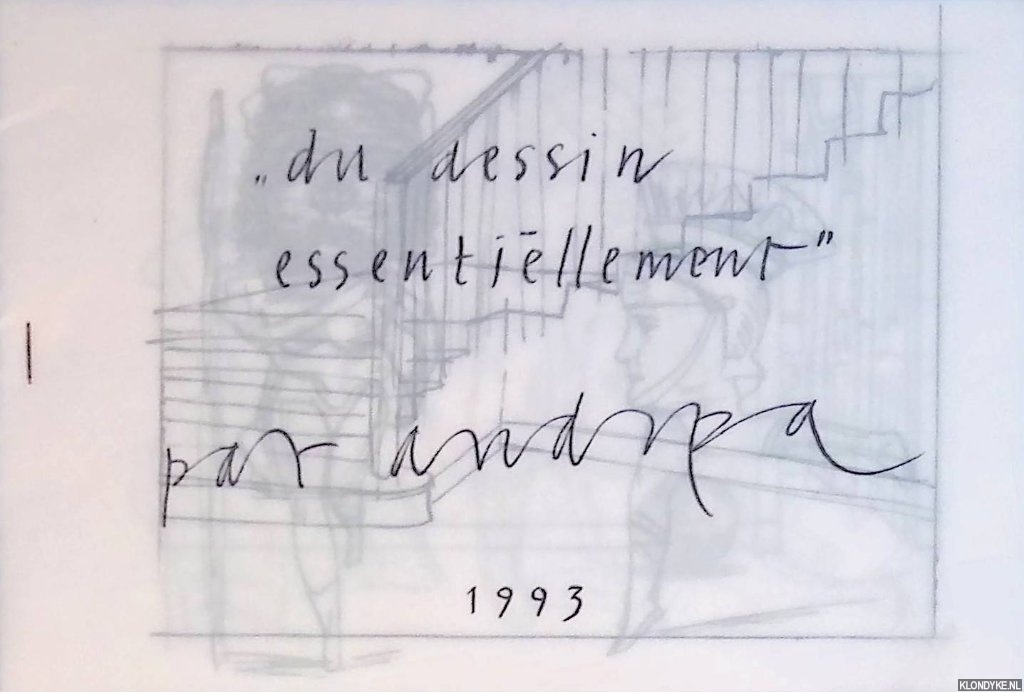 „du dessin
essentiëllement”
par andrpa
1993
KLONDYKE.NL